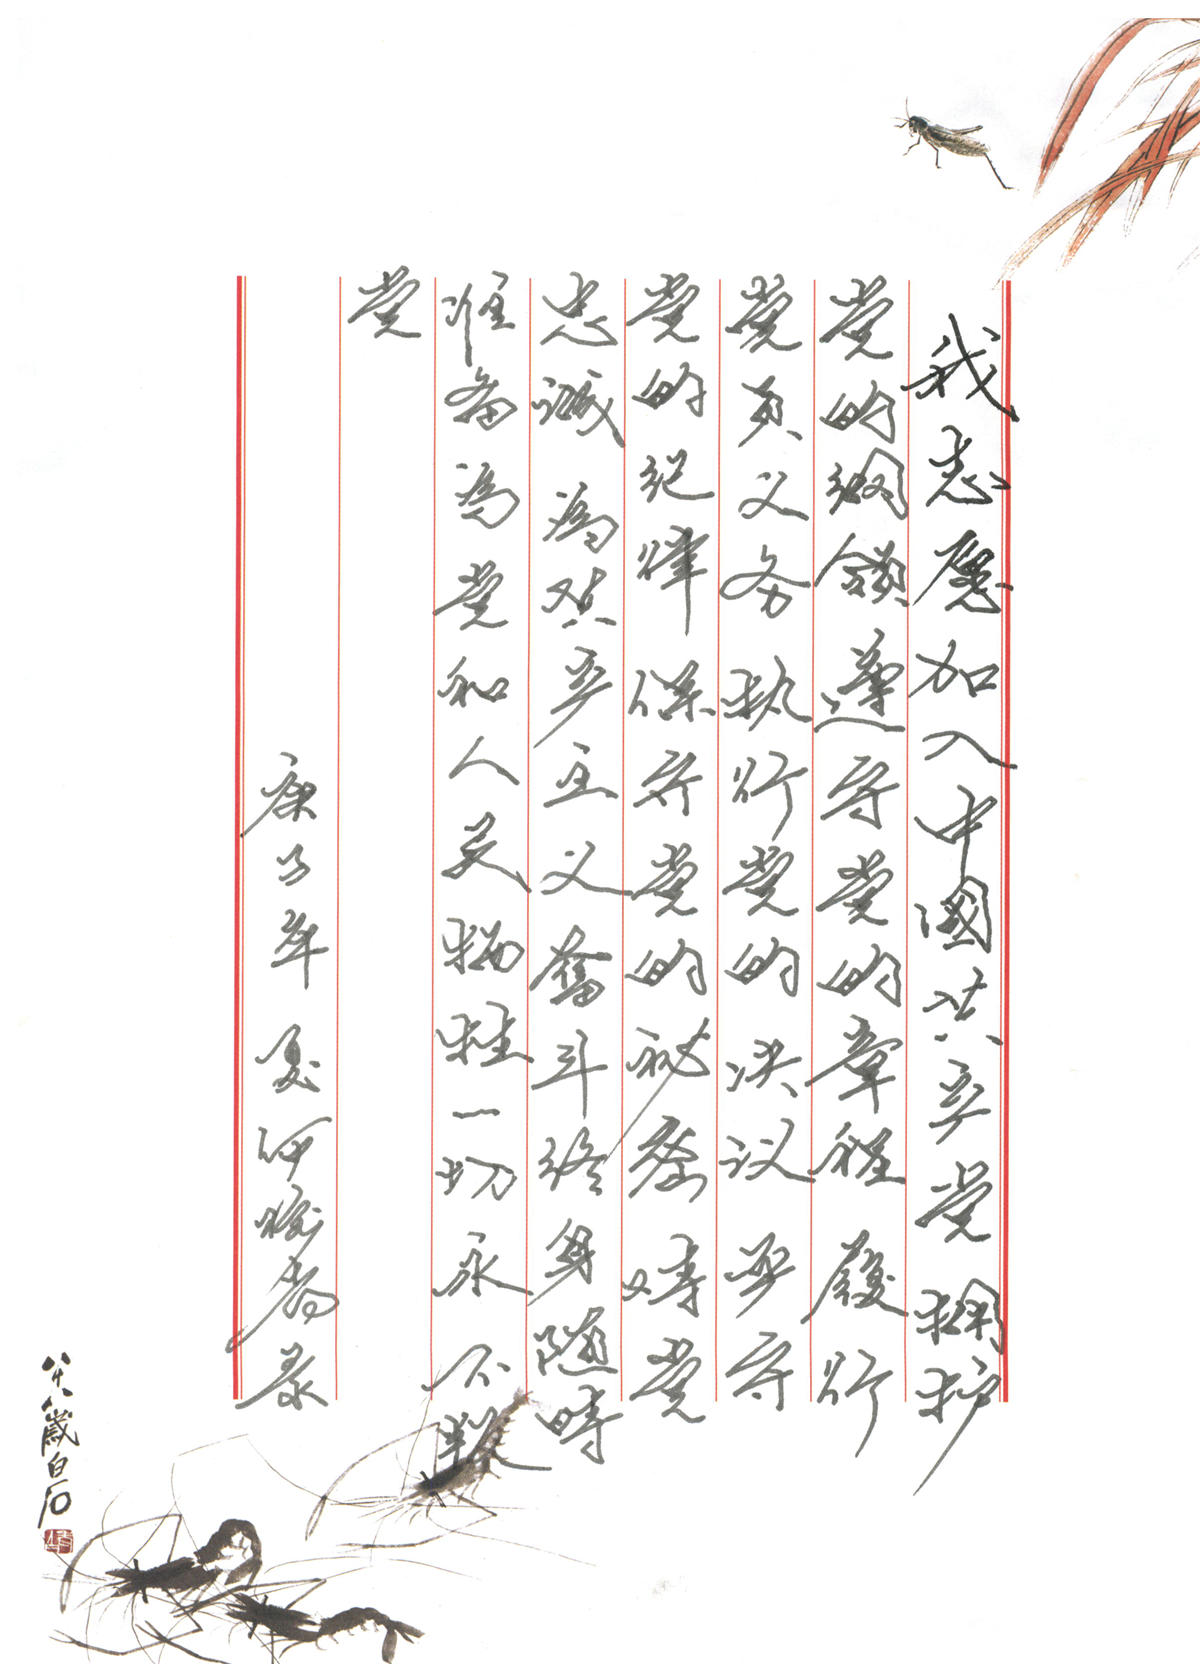 我志愿加入中國共产党拥护
党的纲领遵守党的章程履行
党员义务执行党的决议严守
党的纪律保守党的秘密对党
忠诚為共产主义奮斗终身随時
准备為党和人民牺牲一切永不叛
党
庚子年夏何晓录
八十八歲白石